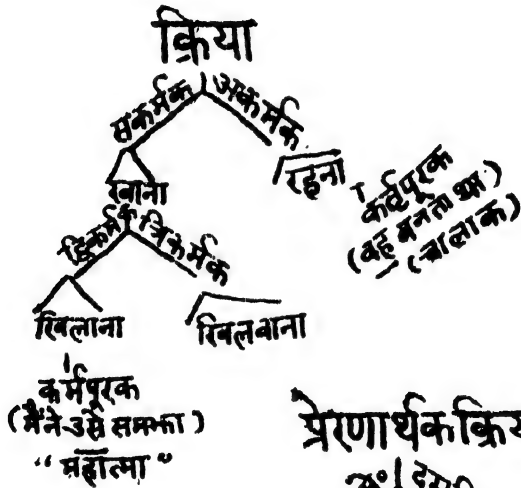 क्रिया
सकर्मक
अकर्मक
खाना
रहना
कर्तृपूरक
(वह बनता था)
(चालाक)
द्विकर्मक
त्रिकर्मक
खिलाना
खिलवाना
कर्मपूरक
(मैंने उसे समझा)
"महात्मा"
प्रेरणार्थक